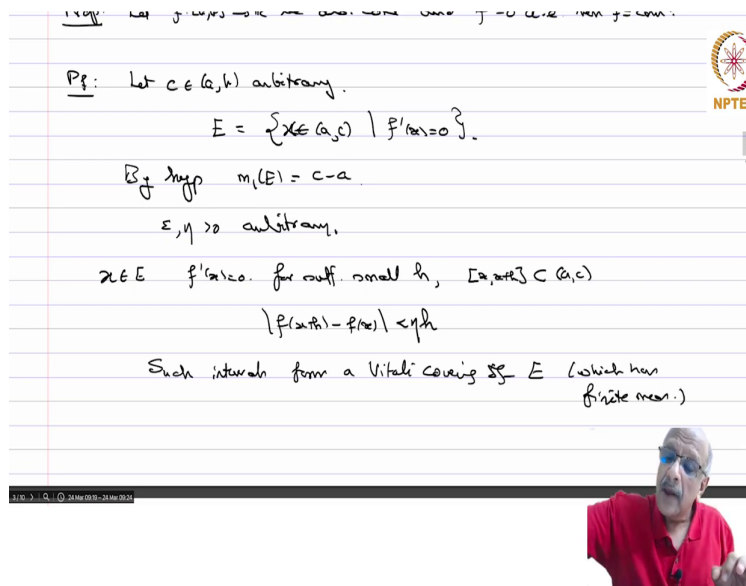 Pf: Let c ∈ (a,b) arbitrary.
E = {x ∈ (a,c) | f'(x)=0}.
By hyp m₁(E) = c-a
ε, η > 0 arbitrary.
x ∈ E f'(x)=0. for suff. small h, [x, x+h] ⊂ (a,c)
|f(x+h) - f(x)| < ηh
Such intervals form a Vitali covering of E (which has
finite meas.)
NPTEL
3/10 24 Mar 09:19 - 24 Mar 09:24